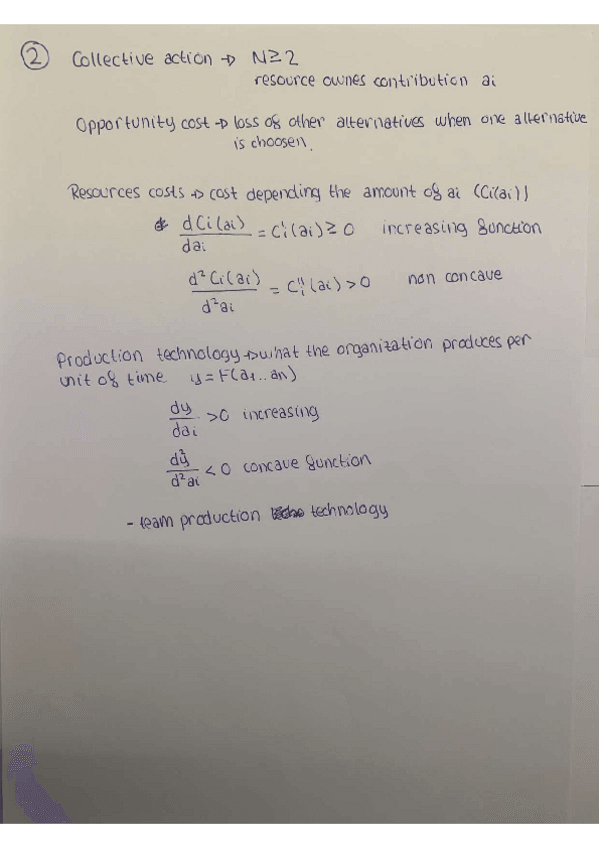 ② Collective action → N≥2
resource ownes contribution ai
Opportunity cost → loss of other alternatives when one alternative
is choosen.
Resources costs → cost depending the amount of ai (Ci(ai))
dCi(ai)/dai = C'i(ai) ≥ 0 increasing function
d²Ci(ai)/d²ai = C''i(ai) > 0 non concave
Production technology → what the organization produces per
unit of time y = F(a1..an)
dy/dai > 0 increasing
d²y/d²ai < 0 concave function
- team production technology